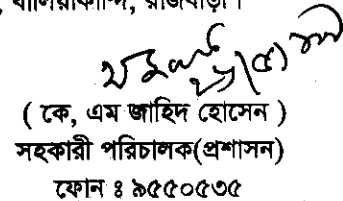 , বালিয়াকান্দি, রাজবাড়ী।
( কে, এম জাহিদ হোসেন )
সহকারী পরিচালক(প্রশাসন)
ফোন ঃ ৯৫৫০৫৩৫